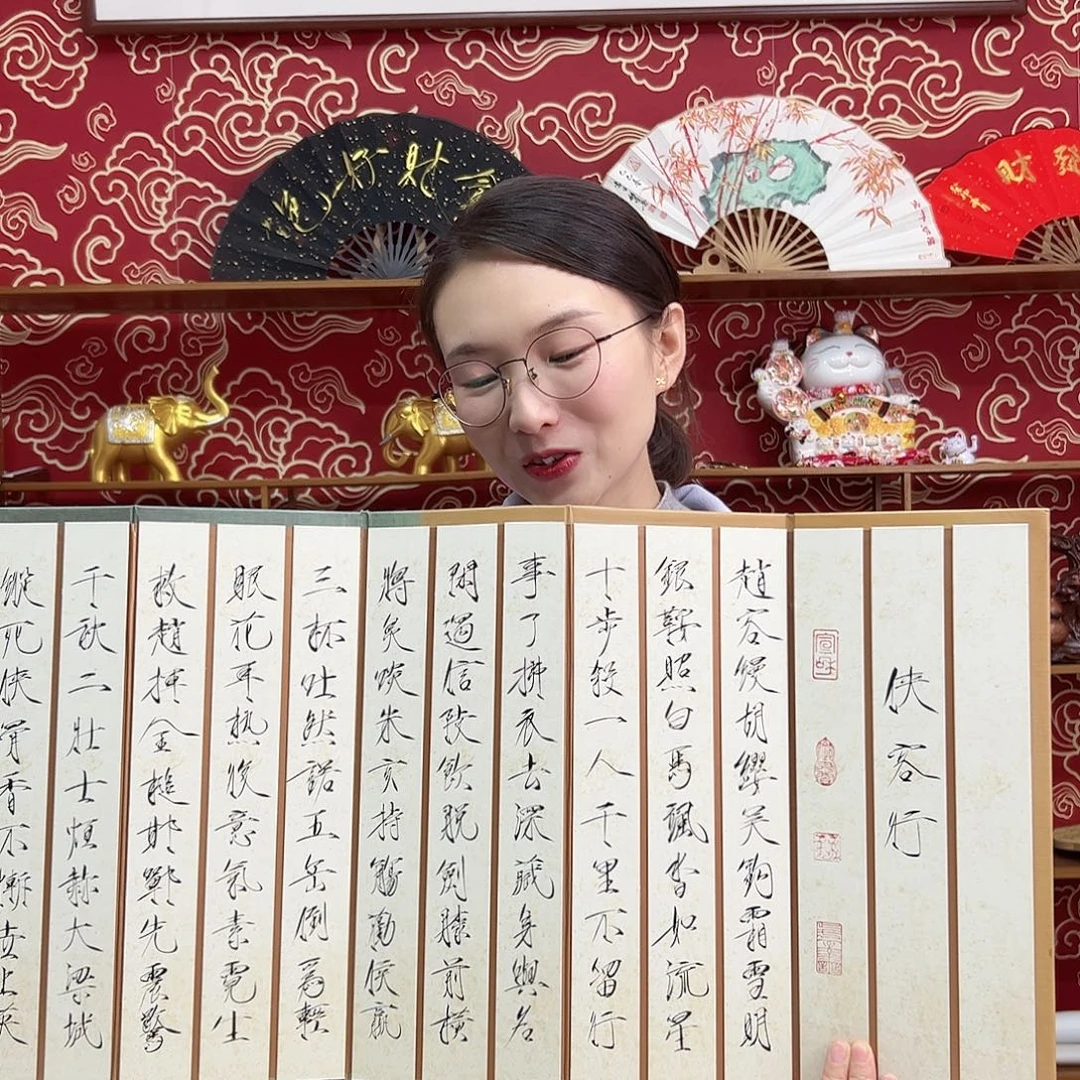 貪財好色
發財
侠客行
宣和
趙客縵胡纓吴鉤霜雪明
銀鞍照白馬颯沓如流星
十步殺一人千里不留行
事了拂衣去深藏身與名
閑過信陵飲脱劍膝前横
將炙啖朱亥持觴勸侯嬴
三杯吐然諾五岳倒爲輕
眼花耳熱後意氣素霓生
救趙揮金槌邯鄲先震驚
千秋二壮士烜赫大梁城
縱死侠骨香不慚世上英